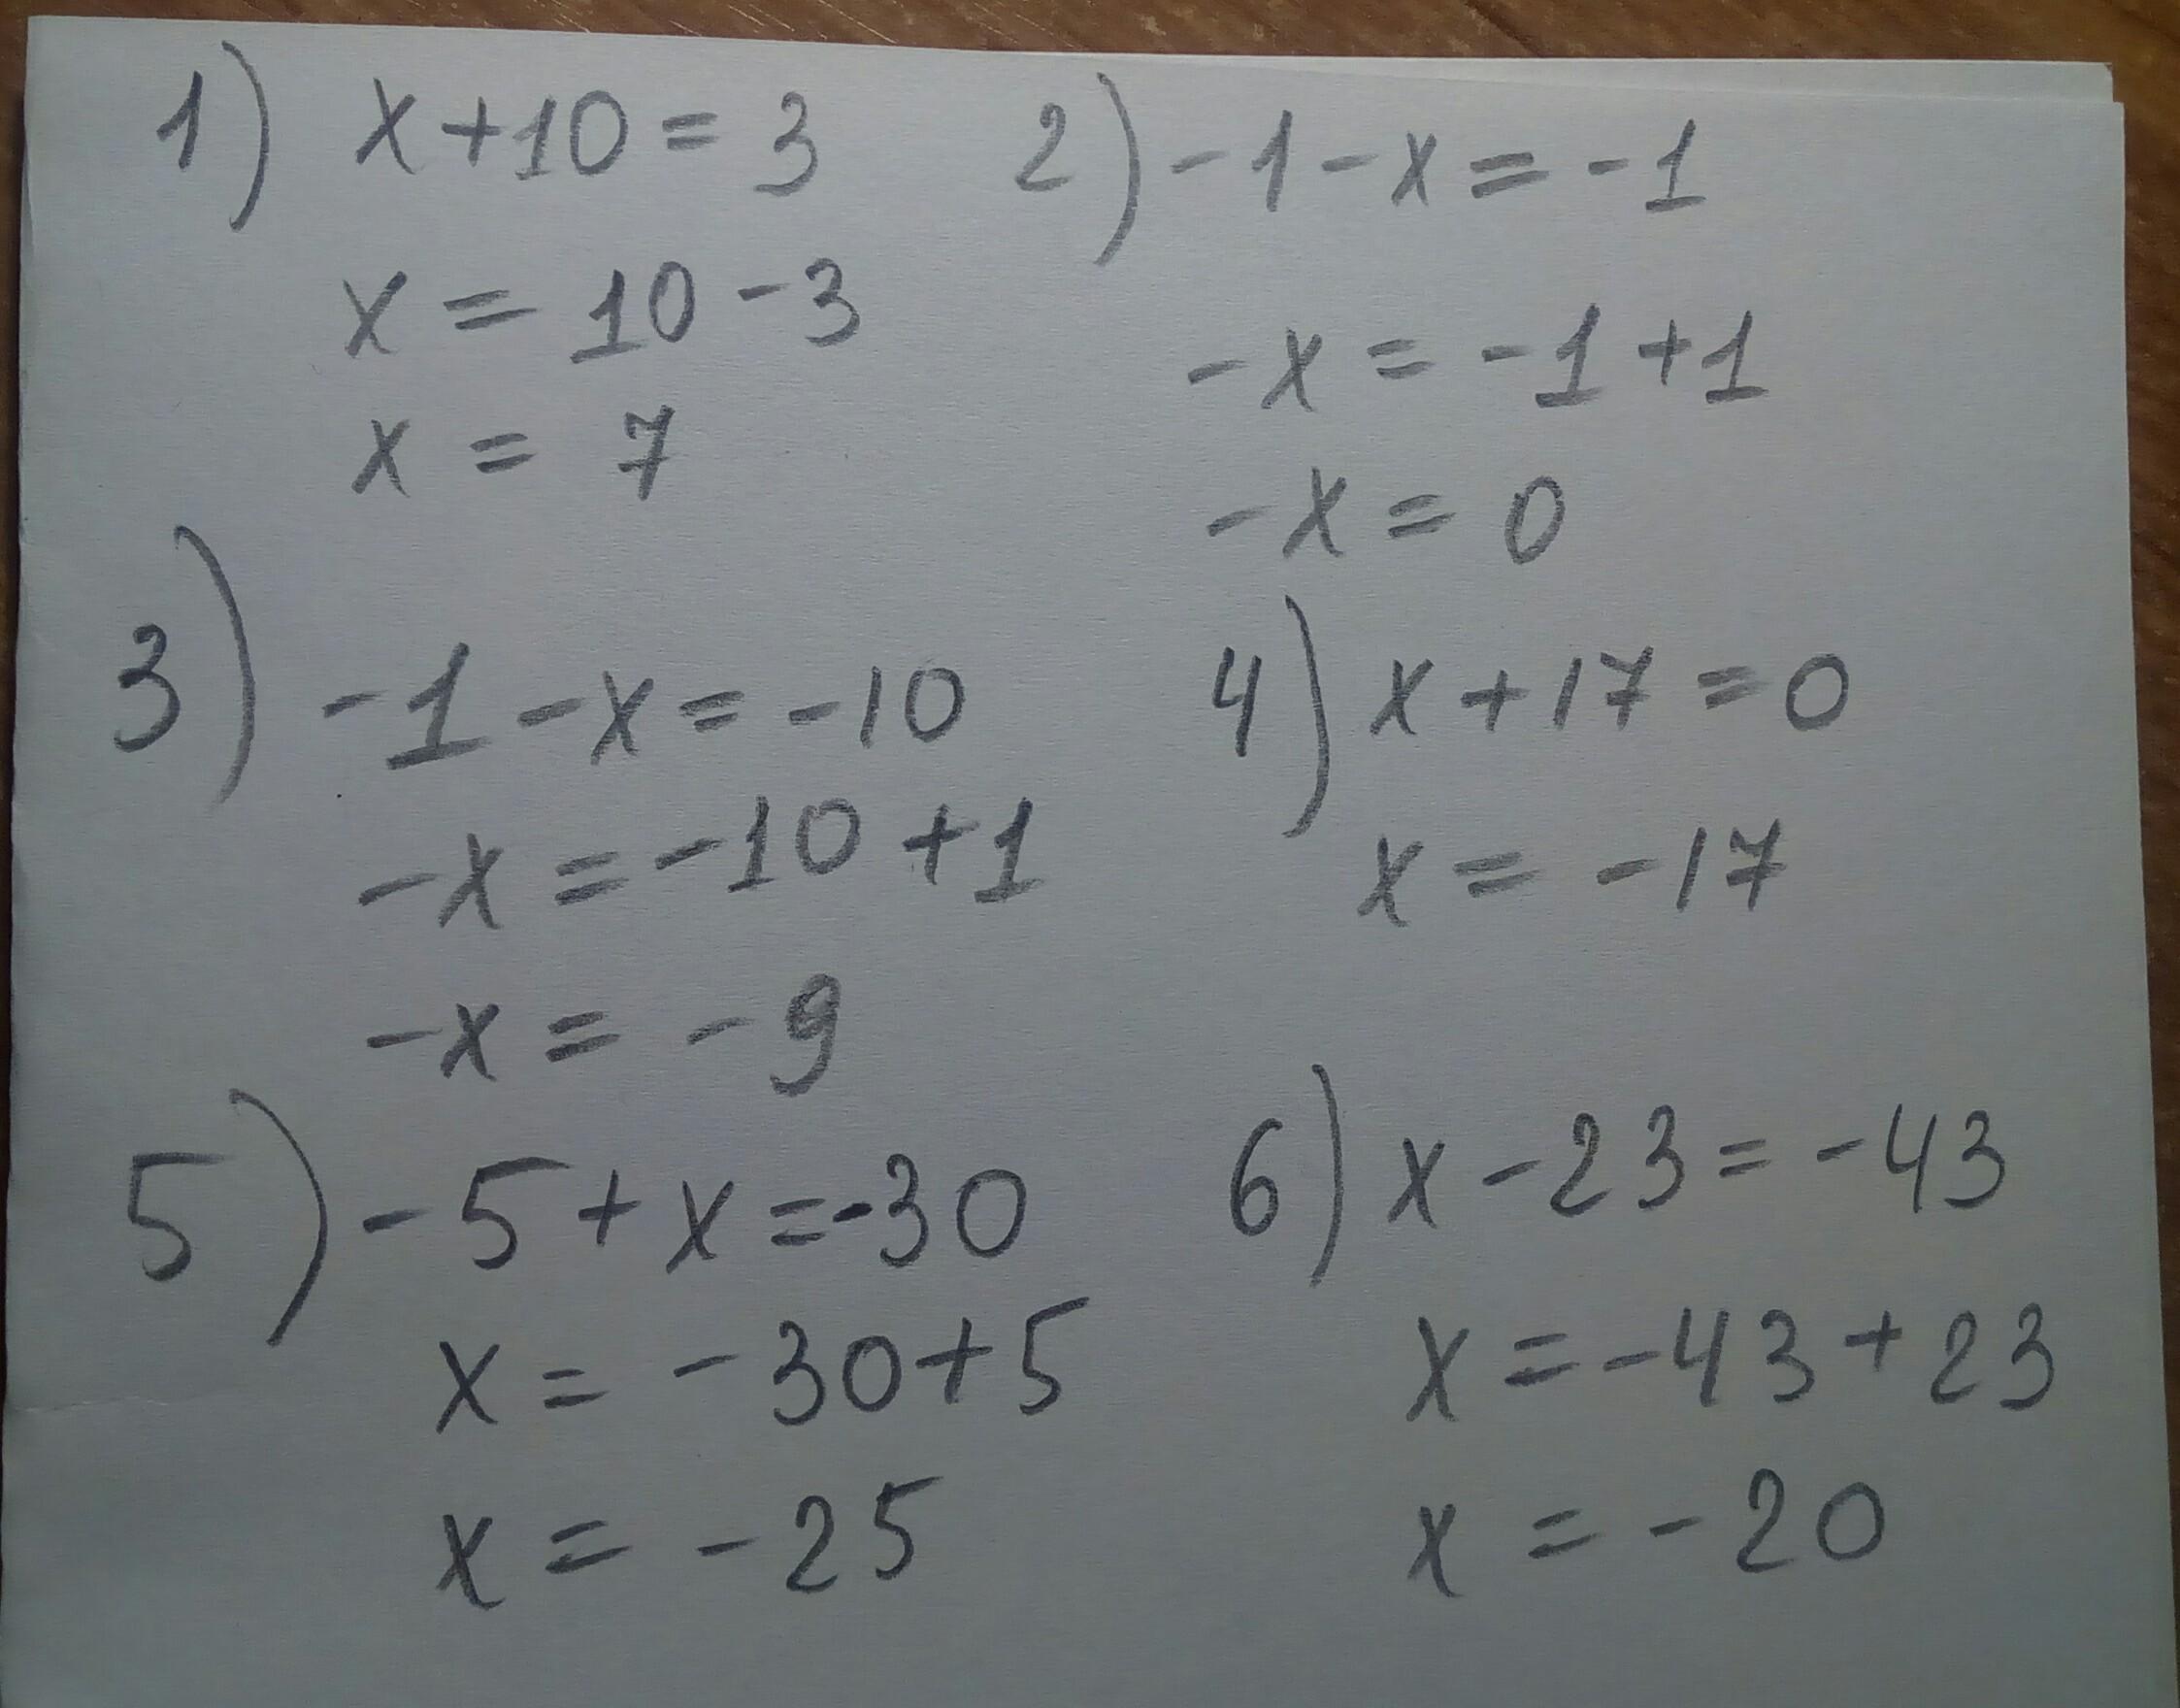 1) x+10=3
x=10-3
x=7
2) -1-x=-1
-x=-1+1
-x=0
3) -1-x=-10
-x=-10+1
-x=-9
4) x+17=0
x=-17
5) -5+x=-30
x=-30+5
x=-25
6) x-23=-43
x=-43+23
x=-20